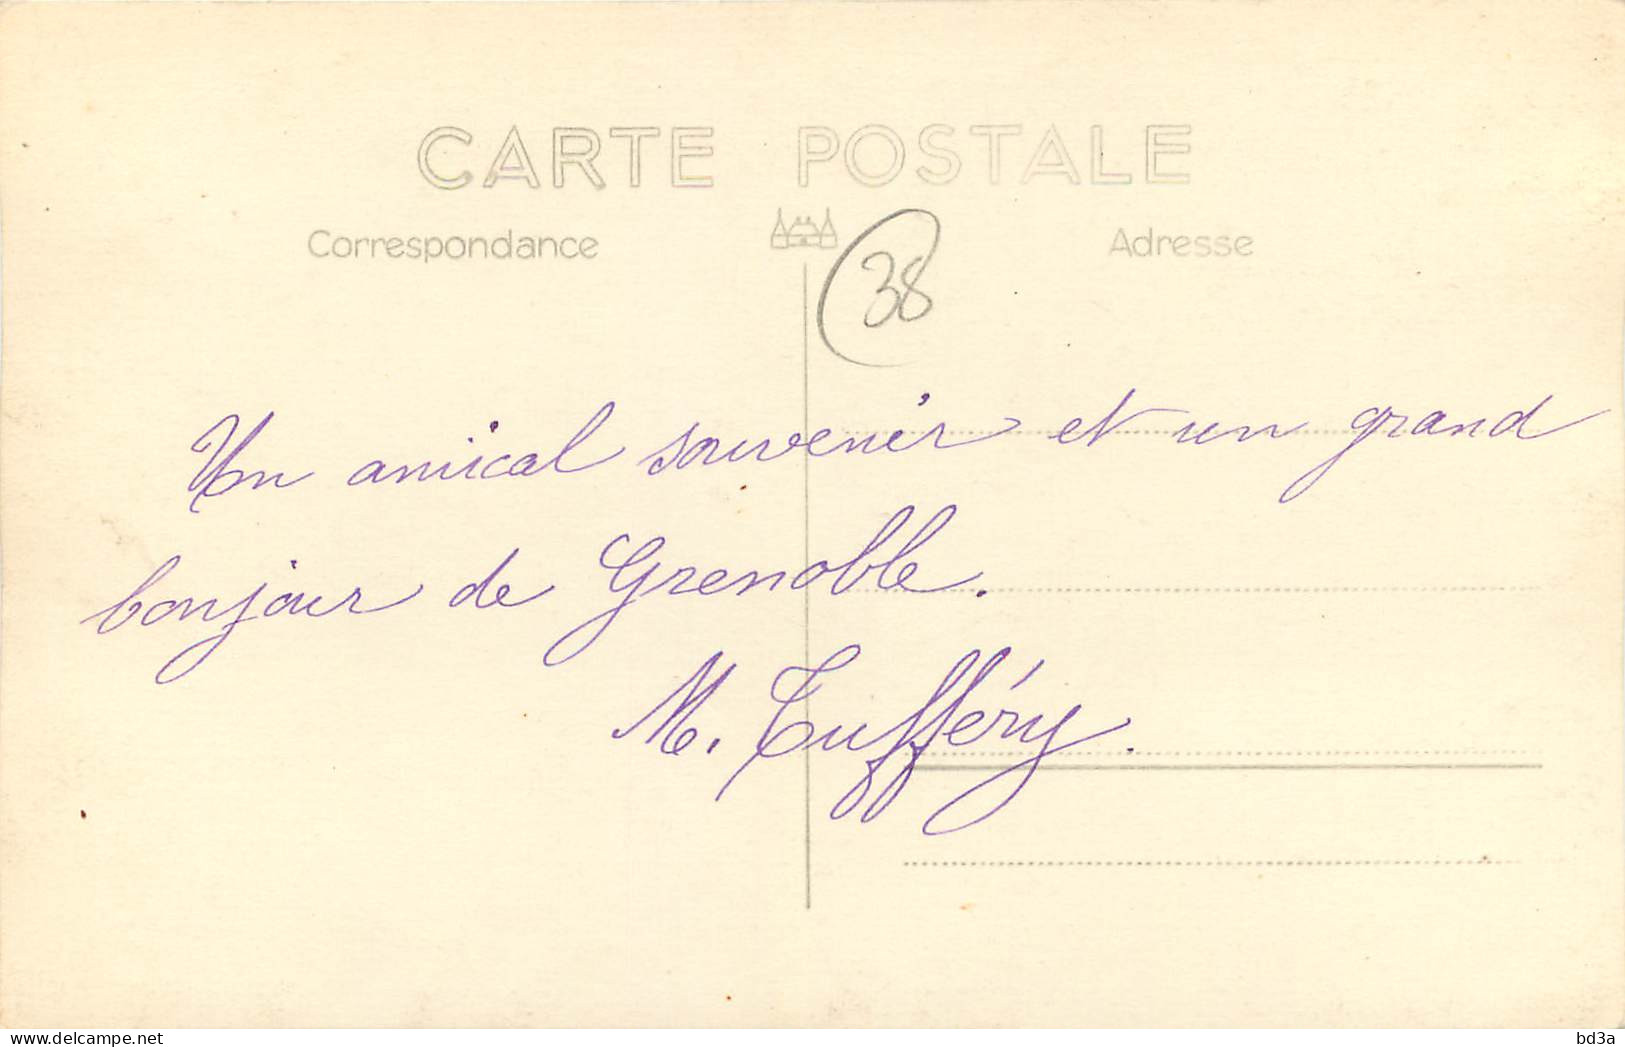 CARTE POSTALE
Correspondance
Adresse
38
Un amical souvenir et un grand
bonjour de Grenoble.
M. Tufféry.
delcampe.net
bd3a